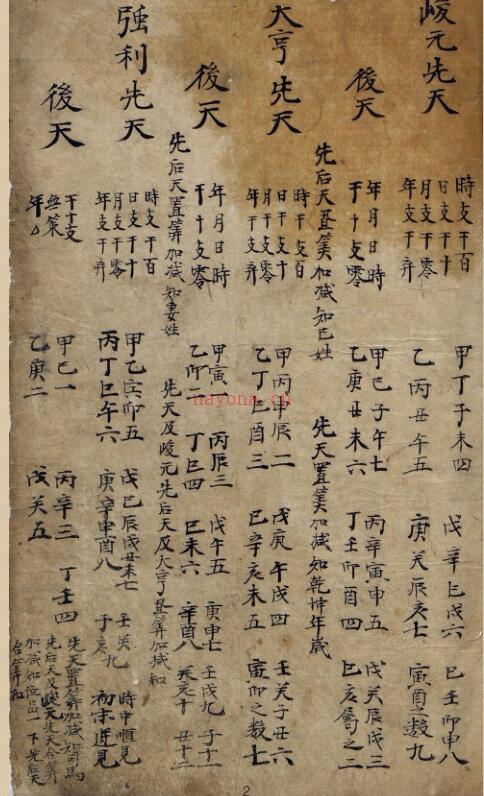 峻元先天
時支干百
日支干十
月支干零
年支干弃
甲丁子未四
乙丙丑午五
戊辛巳戌六
庚癸辰亥七
己壬卯申八
寅酉之数九
後天
年月日時
干十支零
甲己子午七
乙庚丑未六
丙辛寅申五
丁壬卯酉四
戊癸辰戌三
巳亥奇之二
先后天置筭加减知己姓
先天置筭加减知乾坤年歲
大亨先天
時干支百
日干支十
月干支零
年干支弃
甲丙申辰二
乙丁巳酉三
戊庚午戌四
己辛亥未五
壬癸子丑六
寅卯之数七
後天
年月日時
干十支零
甲寅一
乙卯二
丙辰三
丁巳四
戊午五
己未六
庚申七
辛酉八
壬戌九
癸亥十
子十一
丑十二
先后天置筭加减知妻姓
先天及峻元先后天及大亨置筭加减知
強利先天
時支干百
日支干十
月支干零
年支干弃
甲乙寅卯五
丙丁巳午六
戊己辰戌丑未七
庚辛申酉八
壬癸
子亥九
時中順見
初末逆見
後天
干十支
無策
年
甲己一
乙庚二
丙辛三
丁壬四
戊癸五
先天置筭加减知馬
先后天及峻元先天合筭
加减知位品一下先后天
合筭知
nayona.cn
2